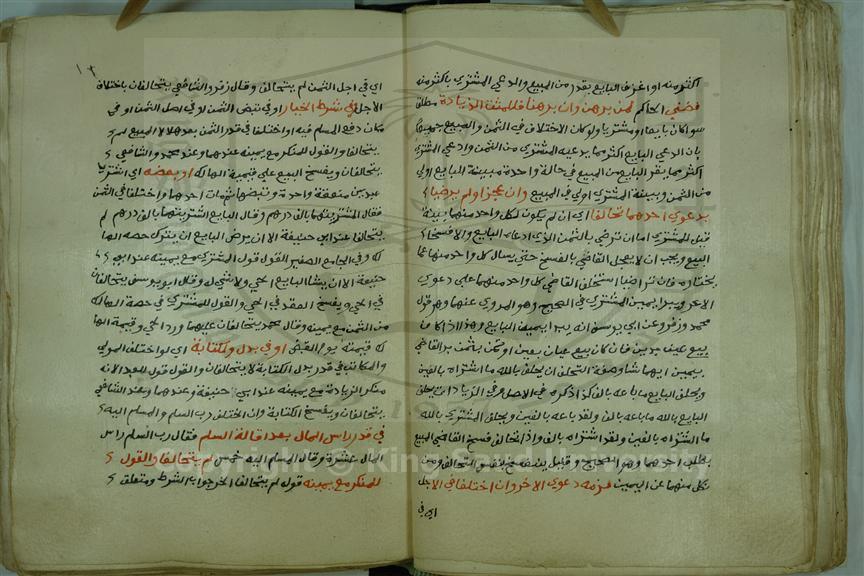 اكثر منه او اعترف البايع بقدر من المبيع وادعي المشتري باكثر منه
قضي الحاكم لمن برهن وان برهنا فلمثبت الزيادة مطلقا
سوا كان بايعا او مشتريا ولو كان الاختلاف في الثمن والمبيع جميعا
بان ادعي البايع اكثر مما يدعيه المشتري من الثمن وادعي المشتري
اكثر مما يقر البايع من المبيع في حالة واحدة فبينة البايع اولي
من الثمن وبينة المشتري اولي في المبيع وان عجزا ولم يرضيا
بدعوي احدهما تحالفا اي ان لم يكن لكل واحد منهما بينة
قيل للمشتري اما ان ترضي بالثمن الذي ادعاه البايع والا فسخنا
البيع ويجب ان لا يعجل القاضي بالفسخ حتي يسال كل واحد منهما عما
يختاره فان تراضيا استحلف القاضي كل واحد منهما علي دعوي
الاخر وبدا بيمين المشتري في الصحيح وهو المروي عنهما وهو قول
محمد وزفر وعن ابي يوسف انه يبدا بيمين البايع وهذا اذا كان
بيع عين بدين فان كان بيع عين بعين او ثمن بثمن بدا القاضي
بيمين ايهما شا وصفة التحالف ان يحلف بالله ما اشتراه بالفين
ويحلف البايع ما باعه بالف كذا ذكره في الاصل وفي الزيادات يحلف
البايع بالله ما باعه بالف ولقد باعه بالفين ويحلف المشتري بالله
ما اشتراه بالفين ولقد اشتراه بالف واذا تحالفا فسخ القاضي البيع
بطلب احدهما وهو الصحيح وقيل ينفسخ بنفس التحالف ومن
نكل منهما عن اليمين لزمه دعوي الاخر وان اختلفا في الاجل
اي في
اي في اجل الثمن لم يتحالفا وقال زفر والشافعي يتحالفان باختلاف
الاجل او في شرط الخيار او في قبض الثمن او في اصل الثمن او في
مكان دفع المسلم فيه او اختلفا في قدر الثمن بعد هلاك المبيع لم
يتحالفا والقول للمنكر مع يمينه عندهما وعند محمد والشافعي
يتحالفان ويفسخ البيع علي قيمة الهالك او بعضه اي اشتريا
عبدين صفقة واحدة وقبضها ثم مات احدهما واختلفا في الثمن
فقال المشتري اشتريتهما بالف درهم وقال البايع اشتريتهما بالفي درهم لم
يتحالفا عند ابي حنيفة الا ان يرض البايع ان يترك حصة الها
لك وفي الجامع الصغير القول قول المشتري مع يمينه عند ابي
حنيفة الا ان يشا البايع الحي ولا شي له وقال ابو يوسف يتحالفان
في الحي ويفسخ العقد في الحي والقول للمشتري في حصة الهالك
من الثمن مع يمينه وقال محمد يتحالفان عليهما ورد الحي وقيمة الها
لك قيمته يوم القبض او في بدل الكتابة اي لو اختلف المولي
والمكاتب في قدر بدل الكتابة لا يتحالفان والقول قول العبد لانه
منكر الزيادة مع يمينه عند ابي حنيفة وعندهما وعند الشافعي
يتحالفان ويفسخ الكتابة وان اختلف رب السلم والمسلم اليه
في قدر راس المال بعد اقالة السلم فقال رب السلم راس
المال عشرة وقال المسلم اليه خمس لم يتحالفا والقول
للمنكر مع يمينه قوله لم يتحالفا الخ جواب الشرط ومتعلق
Copyright © King Saud University